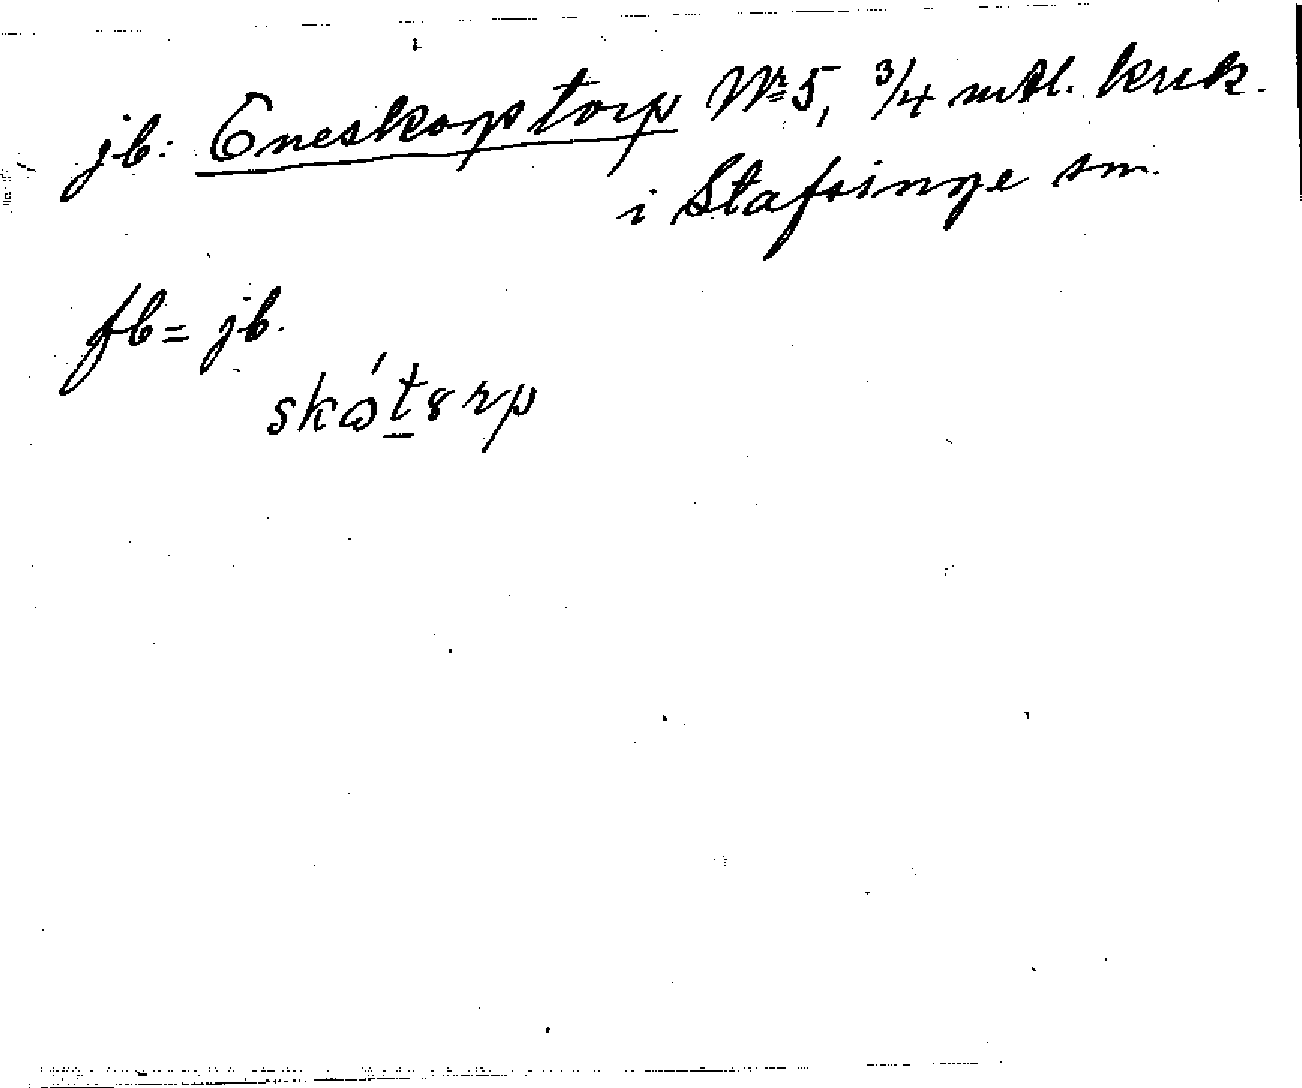 jb: Eneskopstorp Nr 5, 3/4 mtl. krsk.
i Stafsinge sn.
fb = jb.